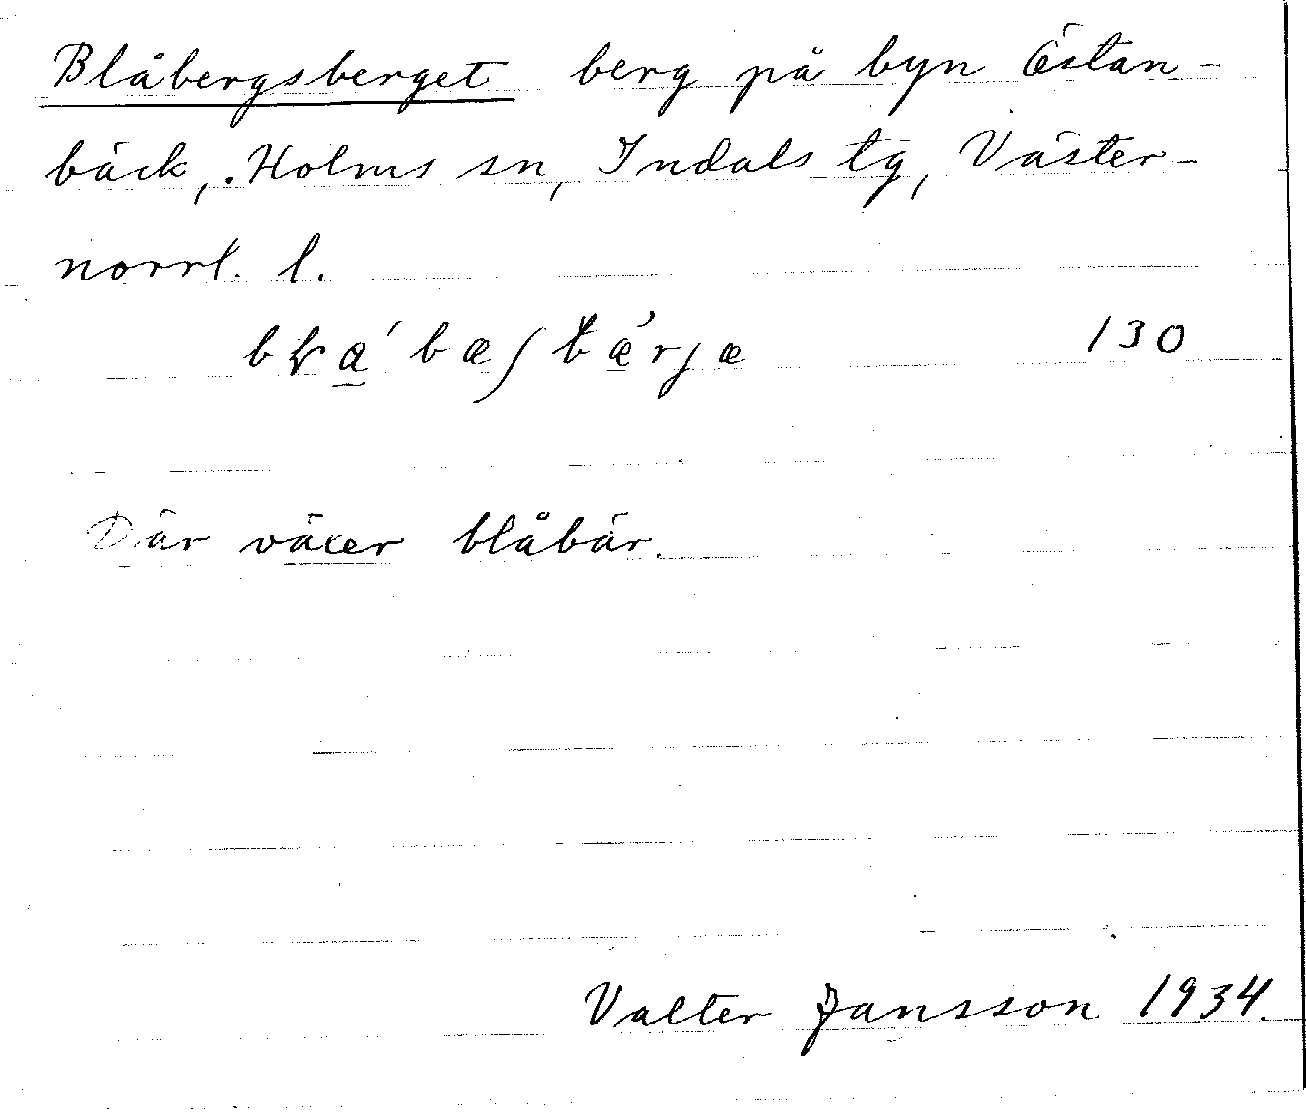 Blåbergsberget berg på byn Östan-
bäck, Holms sn, Indals tg, Väster-
norrl. l.
130
Där växer blåbär.
Valter Jansson 1934.